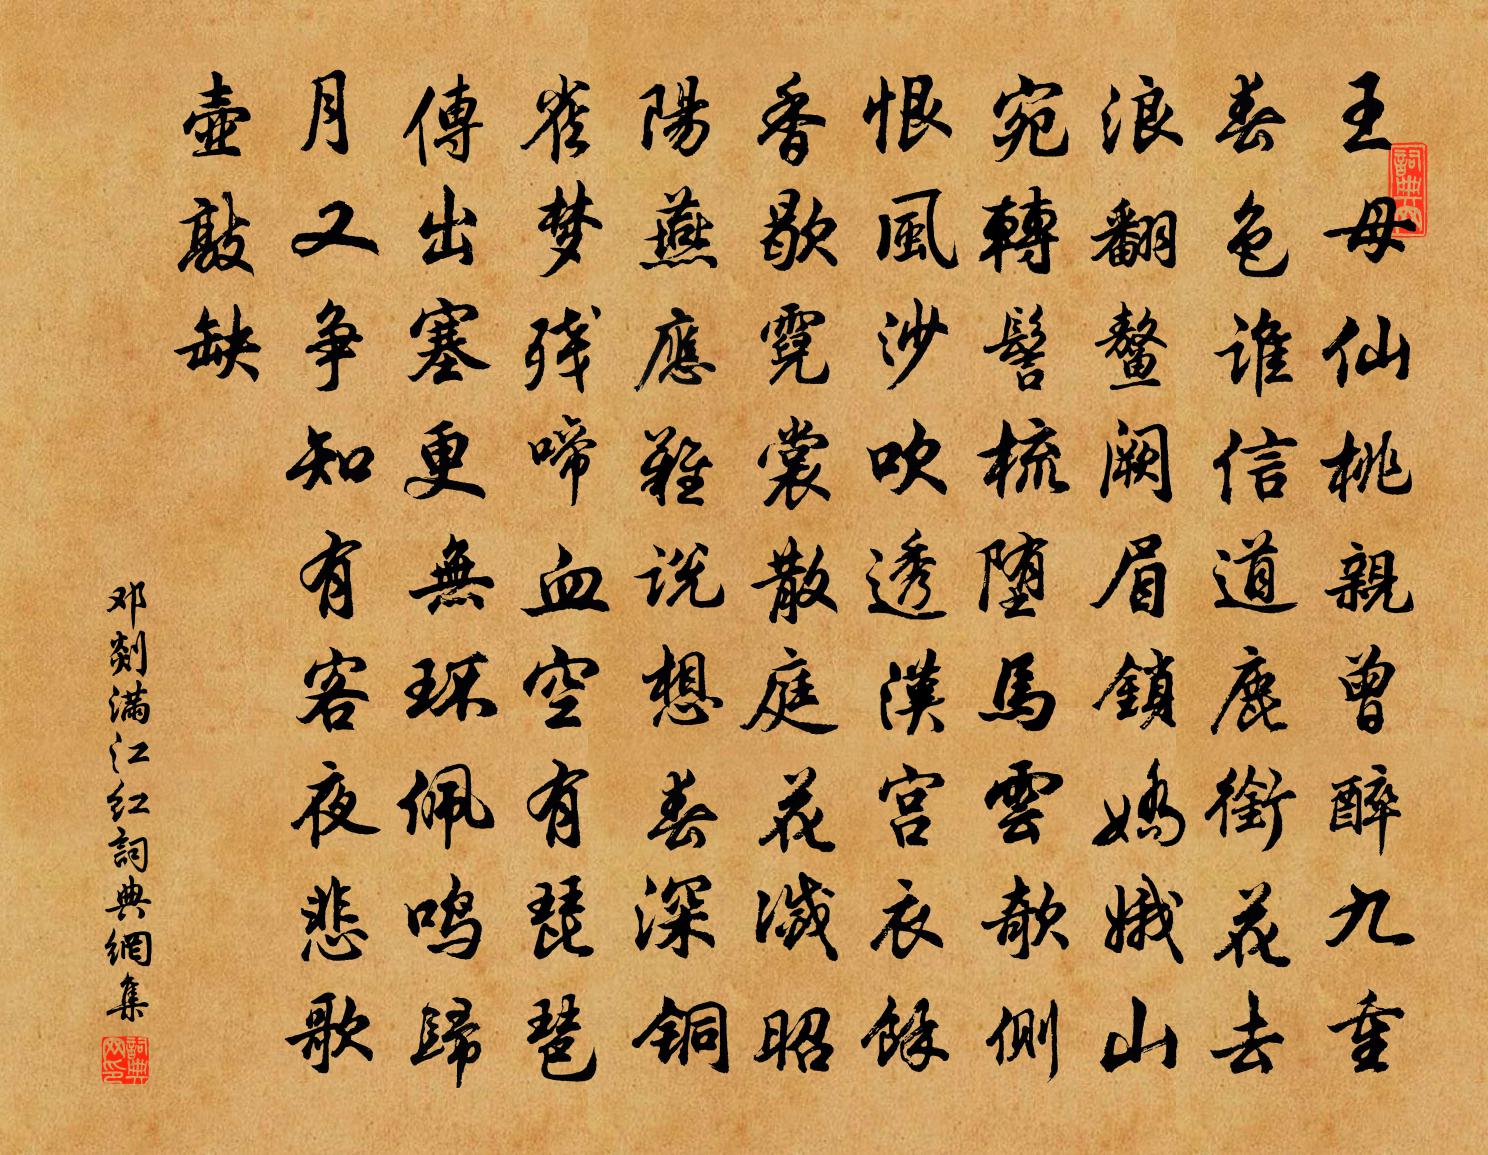 王母仙桃親曾醉九重
春色誰信道鹿銜花去
浪翻鰲闕眉鎖嬌娥山
宛轉髻梳墮馬雲欹側
恨風沙吹透漢宮衣餘
香歇霓裳散庭花滅昭
陽燕應難説想春深銅
雀梦残啼血空有琵琶
傳出塞更無環佩鳴歸
月又爭知有客夜悲歌
壺敲缺
邓剡满江红詞典網集
詞典网
詞典网印